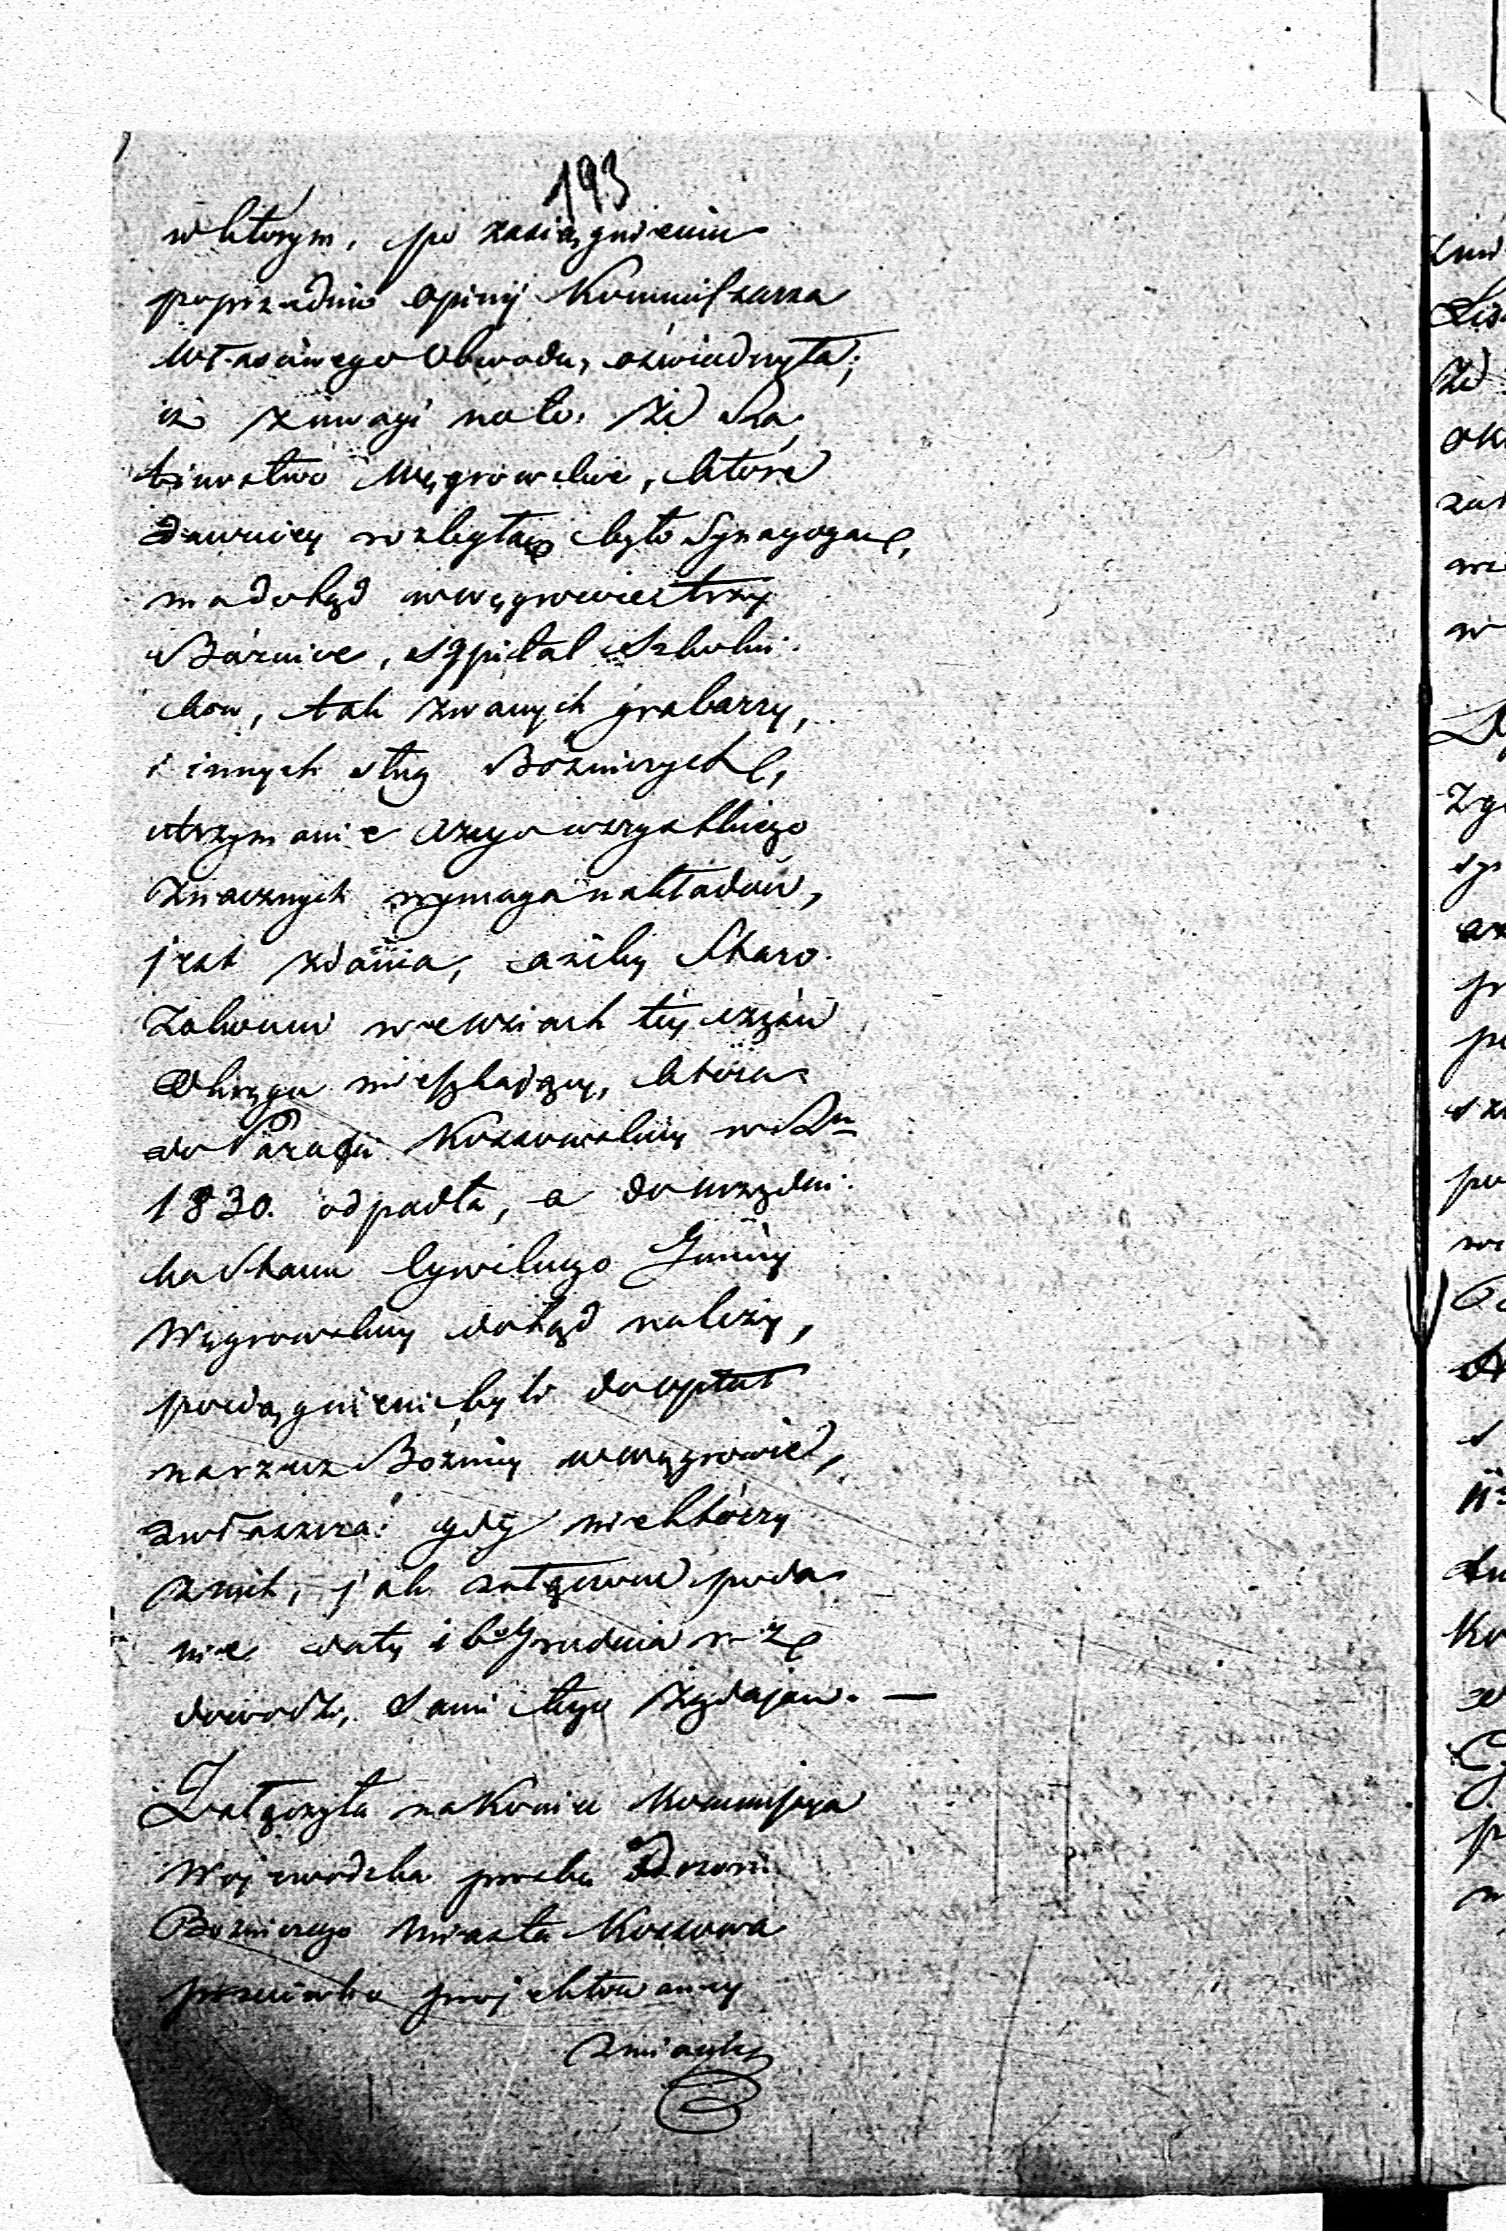 193
w którym, po zasiągnieniu
poprzednio opinij Kommissarza
właściwego Obwodu, oświadczyła;
iż z uwagi na to, że Ra-
binostwo Węgrowskie, które
dawniej rozległą było Synagogą,
ma dotąd w Węgrowie trzy
Bóźnice, szpital Szkolni-
ków, tak zwanych grabarzy,
i innych sług Bóźniczych,
utrzymanie czego wszystkiego
znacznych wymaga nakładów,
jest zdania, ażeby Staro-
zakonni w wsiach tej części
Okręgu mieszkający, która
do Parafii Kossowskiej w R.
1830. odpadła, a do urzędni-
ka Stanu Cywilnego Gminy
Węgrowskiej dotąd należy,
pociągnieni byli do opłat
na rzecz Bóźnicy w Węgrowie,
zwłaszcza gdy niektórzy
z nich, jak załączone poda-
nie daty 16 Grudnia r. z.
dowodzi, sami tego żądają. —
Załączyła nakoniec Kommissya
Wojewódzka prośbę Dozoru
Bożniczego Miasta Kossowa
przeciwko projektowanej
zmianie